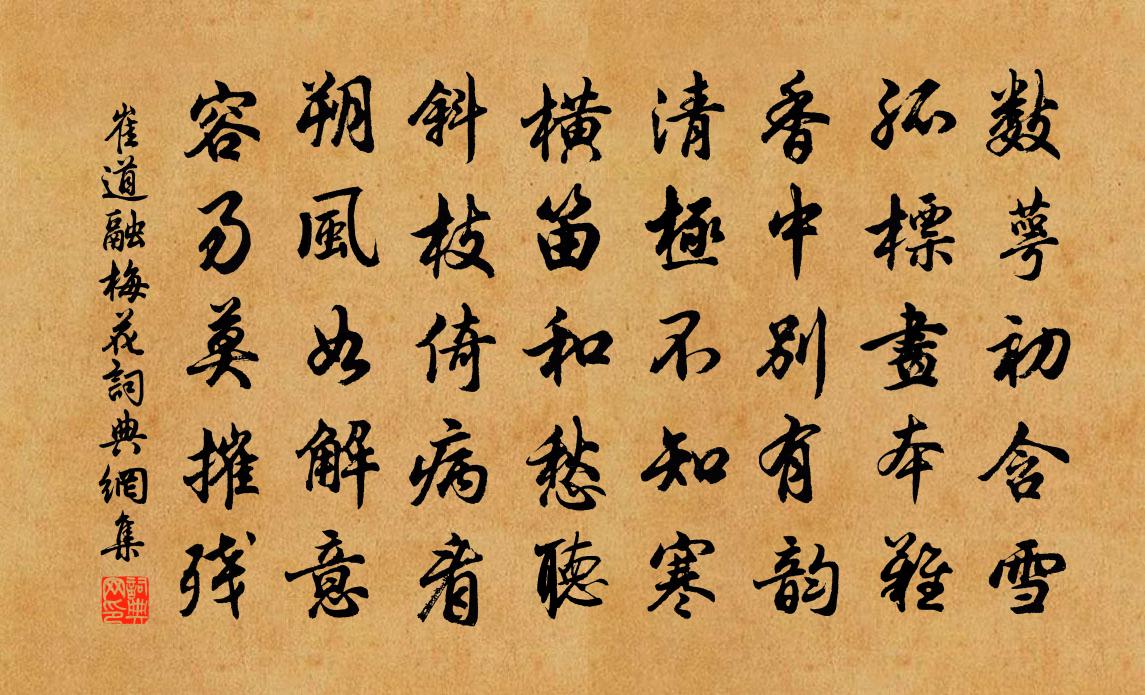 数萼初含雪
孤標畫本難
香中別有韵
清極不知寒
橫笛和愁聽
斜枝倚病看
朔風如解意
容易莫摧残
崔道融梅花詞典網集
詞典网印